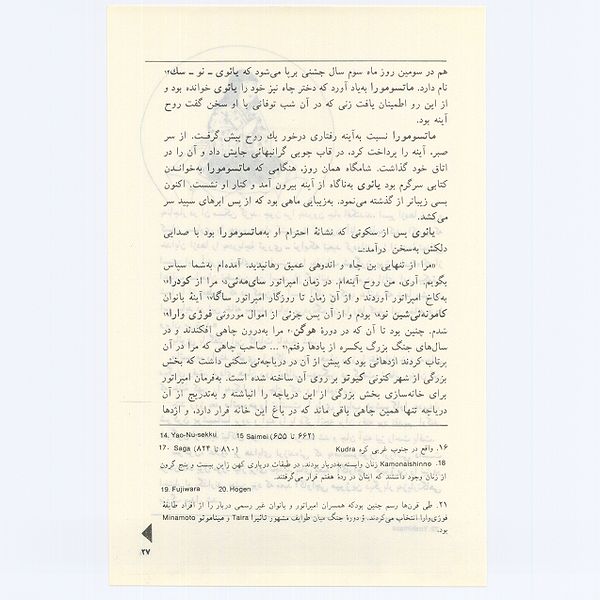 هم در سومین روز ماه سوم سال جشنی برپا می‌شود که یائوی ـ نو ـ سك۱۴
نام دارد. ماتسومورا به‌یاد آورد که دختر چاه نیز خود را یائوی خوانده بود و
از این رو اطمینان یافت زنی که در آن شب توفانی با او سخن گفت روح
آینه بود.
ماتسومورا نسبت به‌آینه رفتاری درخور يك روح پیش گرفت. از سر
صبر، آینه را پرداخت کرد. در قاب چوبی گرانبهائی جایش داد و آن را در
اتاق خود گذاشت. شامگاه همان روز، هنگامی که ماتسومورا به‌خواندن
کتابی سرگرم بود یائوی به‌ناگاه از آینه بیرون آمد و کنار او نشست. اکنون
بسی زیباتر از گذشته می‌نمود، به‌زیبایی ماهی بود که از پس ابرهای سپید سر
می‌کشد.
یائوی پس از سکوتی که نشانهٔ احترام او به‌ماتسومورا بود با صدایی
دلکش به‌سخن درآمد:
«مرا از تنهایی بن چاه و اندوهی عمیق رهانیدید. آمده‌ام به‌شما سپاس
بگویم. آری، من روح آینه‌ام. در زمان امپراتور سای‌مه‌ئی۱۵ مرا از کودرا۱۶
به‌کاخ امپراتور آوردند و از آن زمان تا روزگار امپراتور ساگا۱۷ آینهٔ بانوان
کامونه‌ئی‌شین نو۱۸ بودم و از آن پس جزئی از اموال موروثی فوژی وارا۱۹
شدم. چنین بود تا آن که در دورهٔ هوگن۲۰ مرا به‌درون چاهی افکندند و در
سال‌های جنگ بزرگ یکسره از یادها رفتم۲۱ ... صاحب چاهی که مرا در آن
پرتاب کردند اژدهائی بود که پیش از آن در دریاچه‌ئی سکنی داشت که بخش
بزرگی از شهر کنونی کیوتو بر روی آن ساخته شده است. به‌فرمان امپراتور
برای خانه‌سازی بخش بزرگی از این دریاچه را انباشته و به‌تدریج از آن
دریاچه تنها همین چاهی باقی ماند که در باغ این خانه قرار دارد، و اژدها
14. Yao-Nu-sekku 15 Saimei (۶۶۲ تا ۶۵۵)
۱۶. واقع در جنوب غربی کره Kudra
17- Saga (۸۱۰ تا ۸۲۴)
18. Kamonaishinno زنان وابسته به‌دربار بودند. در طبقات درباری کهن ژاپن بیست و پنج گرون
از زنان وجود داشتند که اینان در ردهٔ هفتم قرار می‌گرفتند.
19. Fujiwara 20. Hogen
۲۱. طی قرن‌ها رسم چنین بودکه همسران امپراتور و بانوان غیر رسمی دربار را از افراد طایفهٔ
فوژی‌وارا انتخاب می‌کردند. و دورهٔ جنگ میان طوایف مشهور تائیرا Taira و میناموتو Minamoto
بود.
۲۷